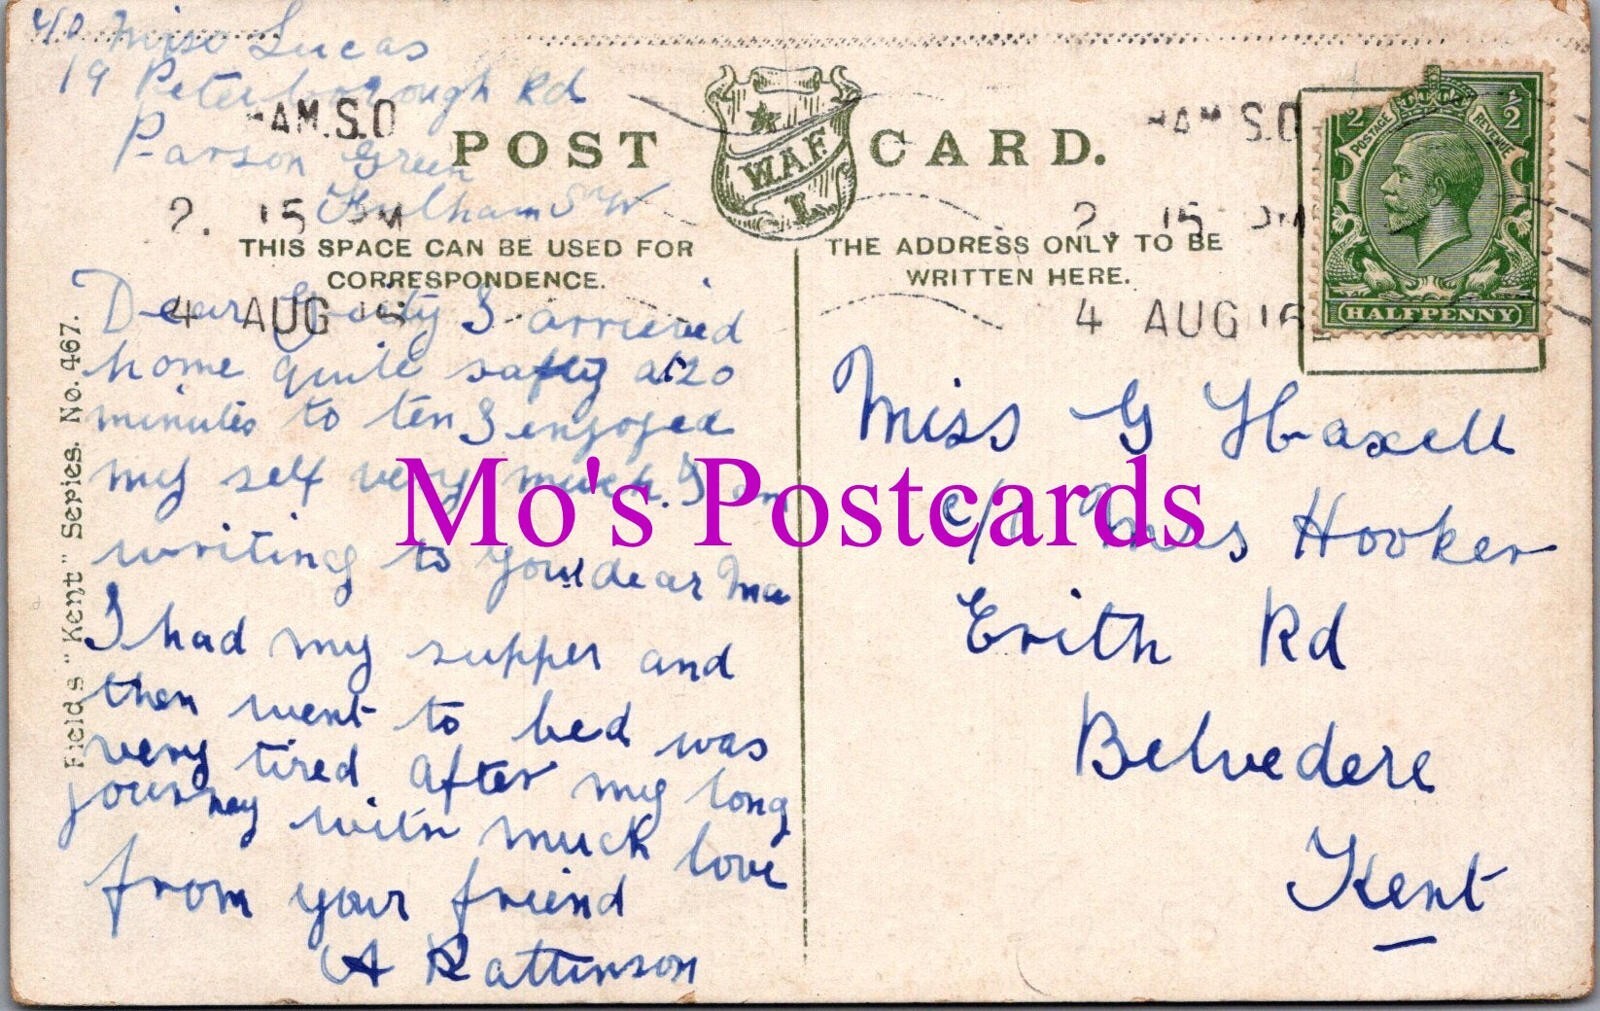 c/o Miss Lucas
19 Peterborough Rd
Parson Green
Fulham S W
HAM.S.O
2. 15 PM
4 AUG 16
POST CARD.
W.A.F.
L.
THIS SPACE CAN BE USED FOR
CORRESPONDENCE.
THE ADDRESS ONLY TO BE
WRITTEN HERE.
HAM S.O
2. 15 PM
4 AUG 16
1/2 1/2
POSTAGE REVENUE
HALFPENNY
Dear I arrieved
home quite safley at 20
minutes to ten I enjoyed
my self very much. I am
writing to your dear Ma
I had my supper and
then went to bed was
very tired after my long
journey with much love
from your friend
A Rattinson
Field's "Kent" Series. No. 467.
Miss G Haxell
c/o Mrs Hooker
Erith Rd
Belvedere
Kent
Mo's Postcards